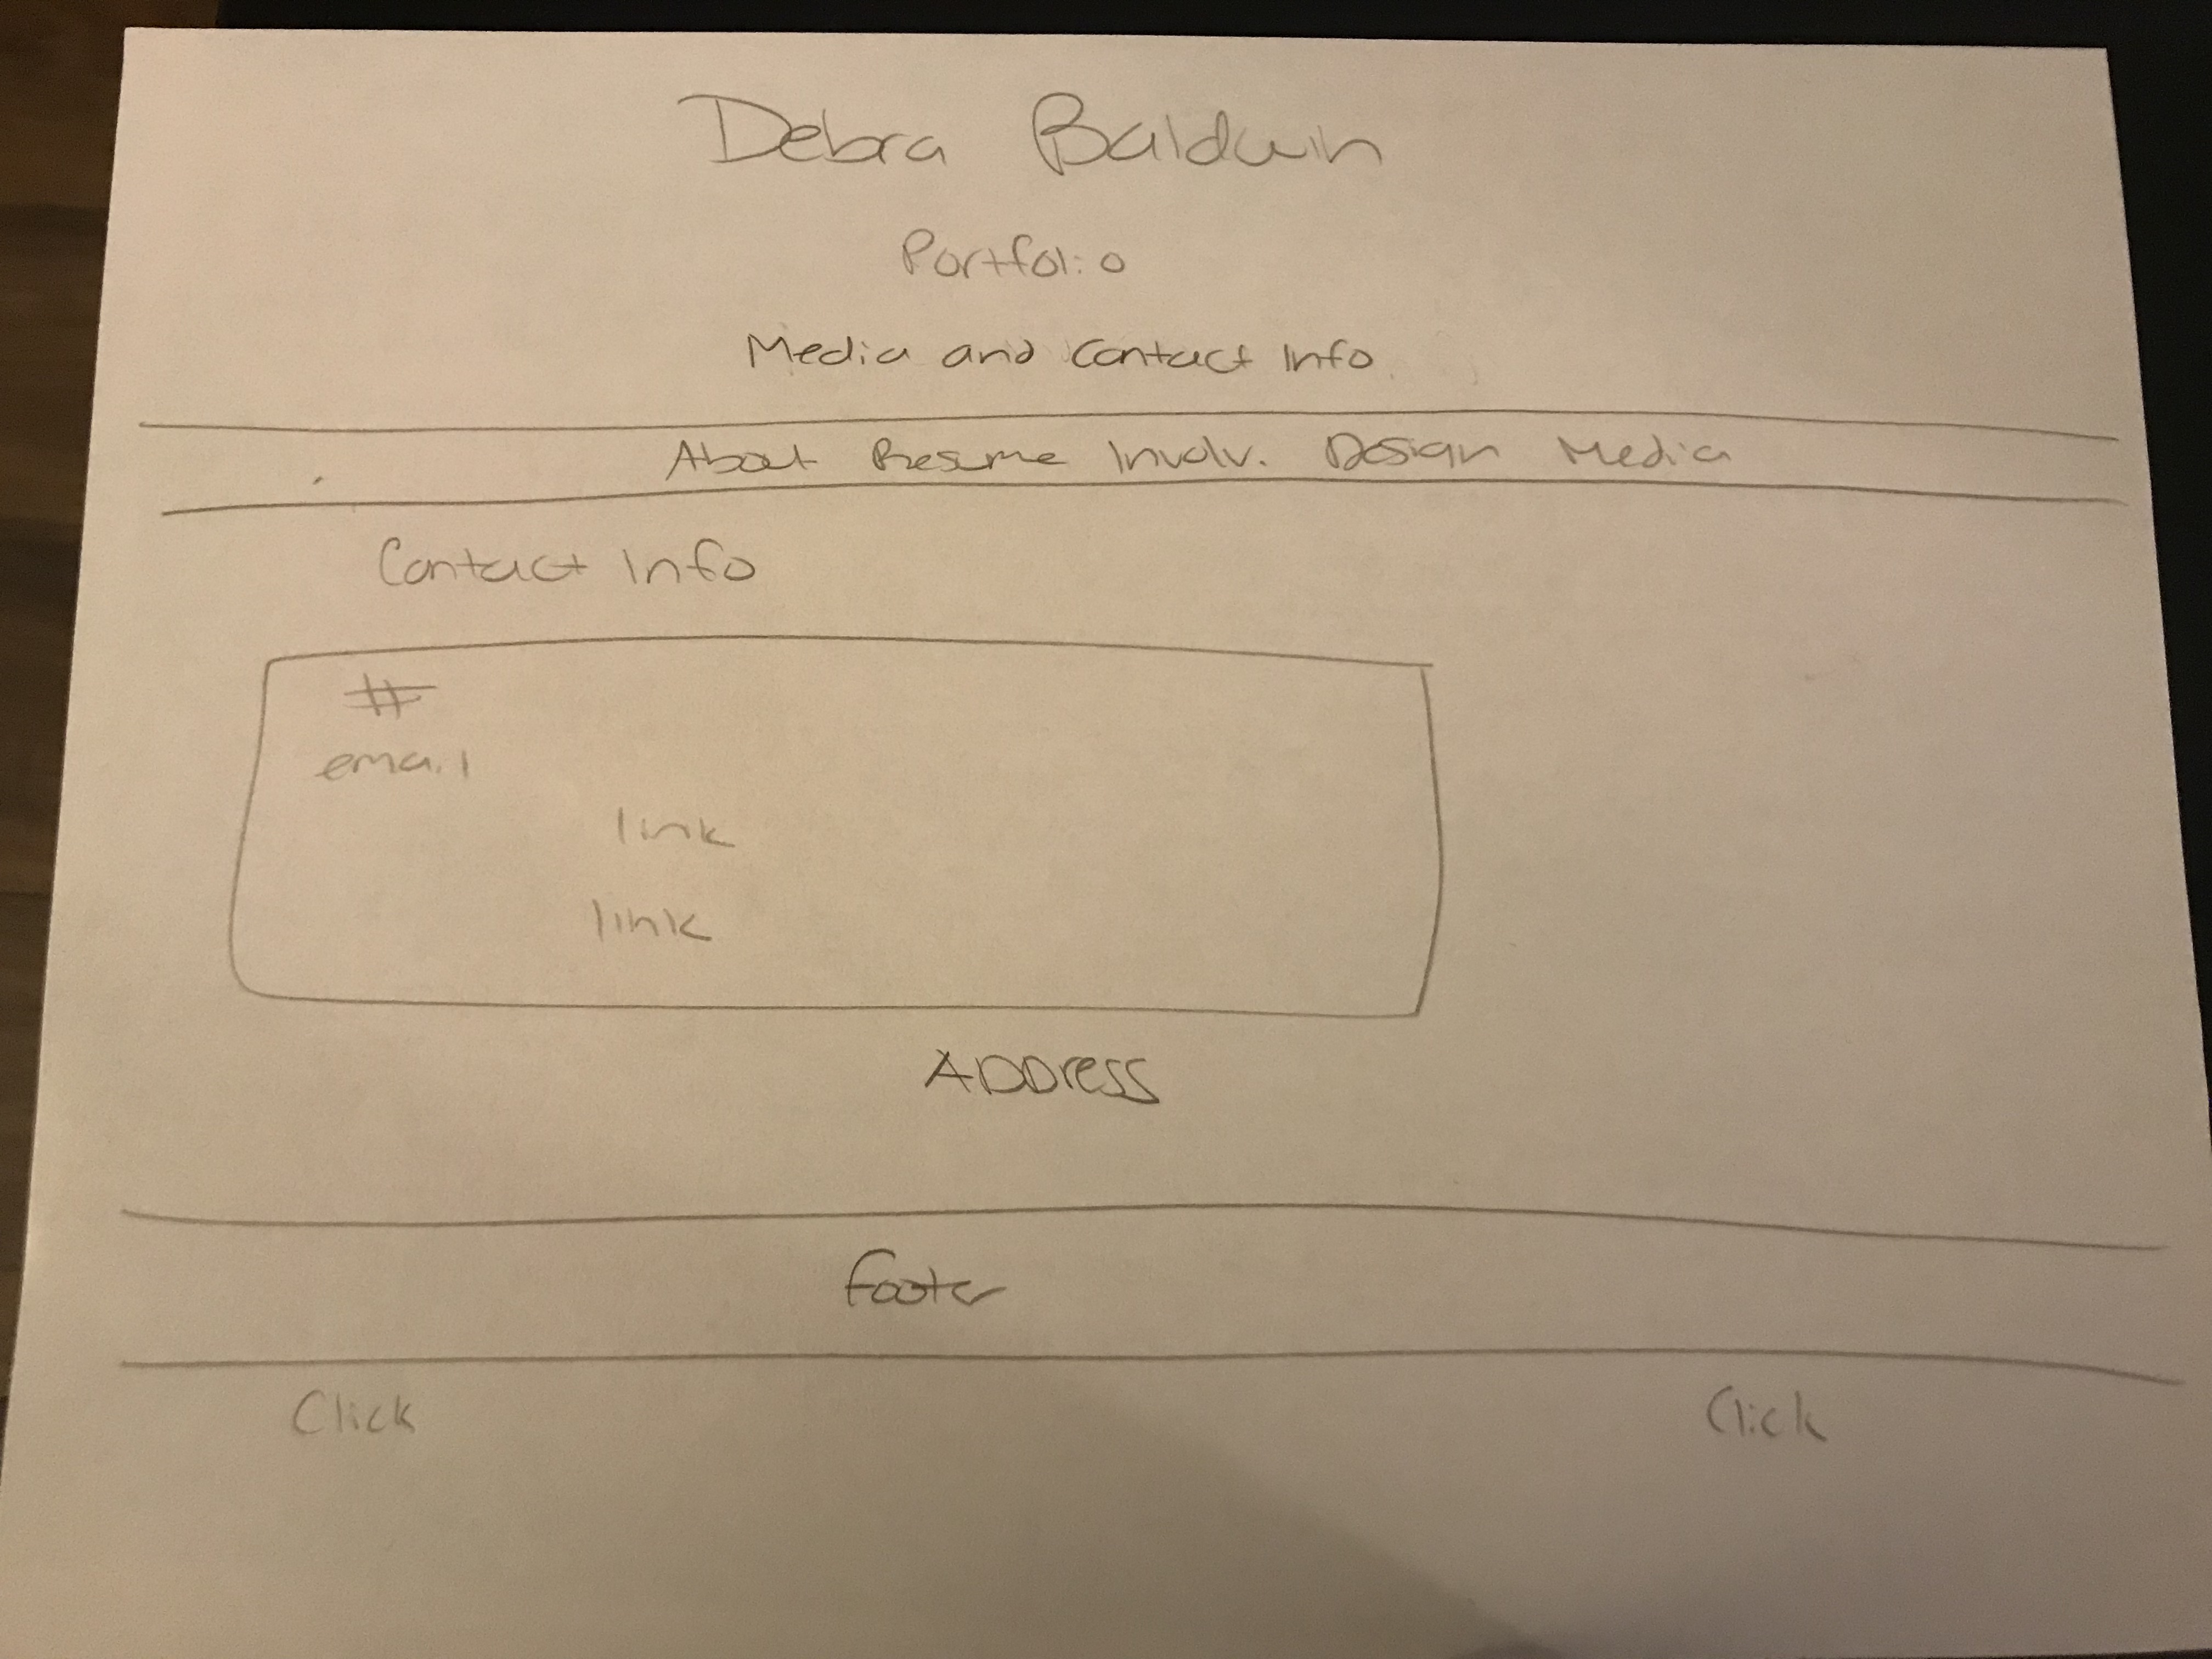 Debra Baldwin
Portfolio
Media and Contact Info
About Resume Involv. Design Media
Contact Info
#
email
link
link
ADDRESS
footer
Click Click